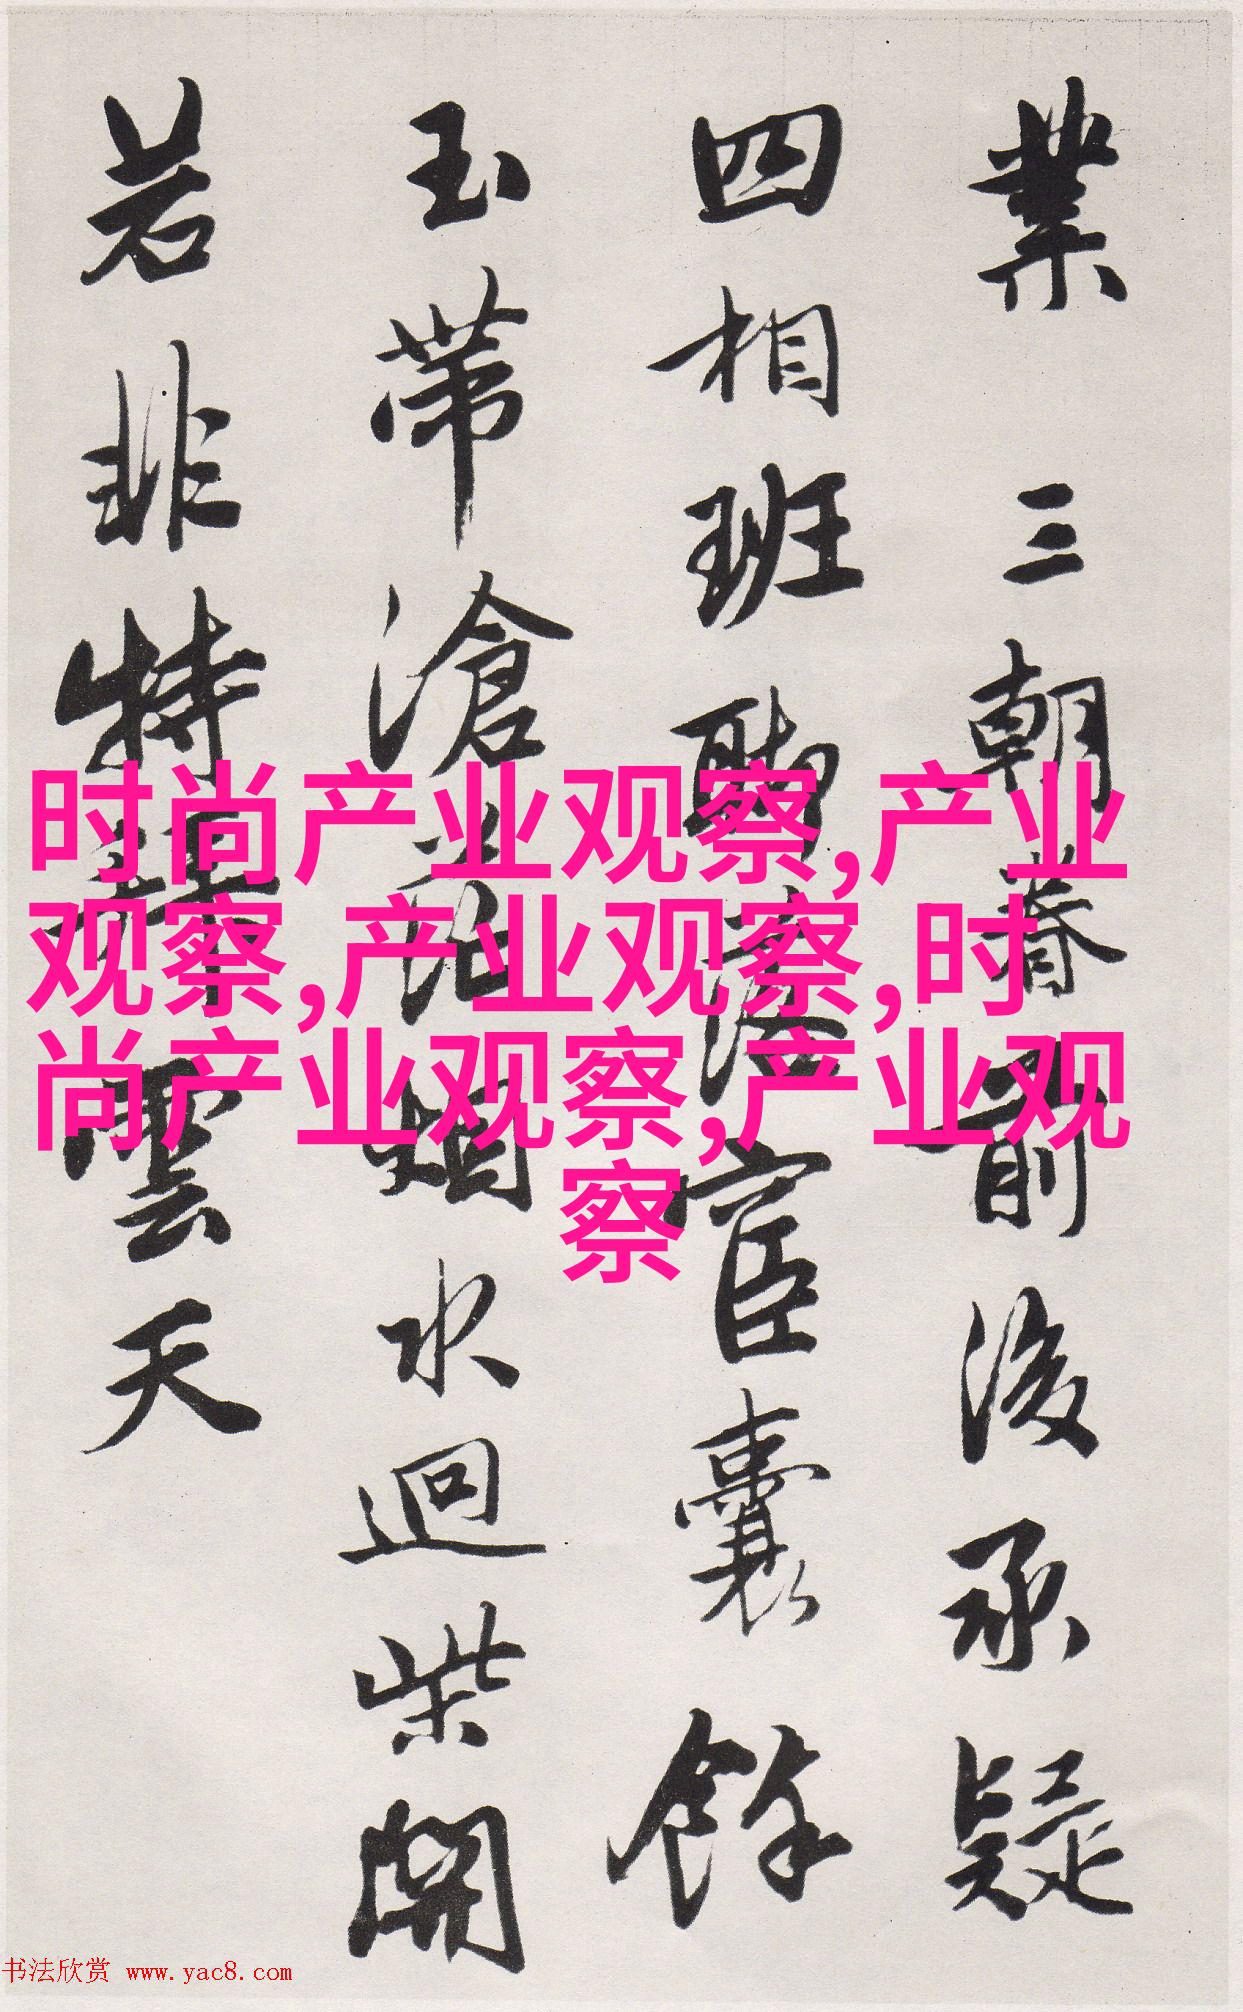 業三朝眷前後承疑
四相班聯落宦囊餘
玉帶滄浪烟水迴柴開
若非特雲天
时尚产业观察,产业
观察,产业观察,时
尚产业观察,产业观
察
书法欣赏 www.yac8.com